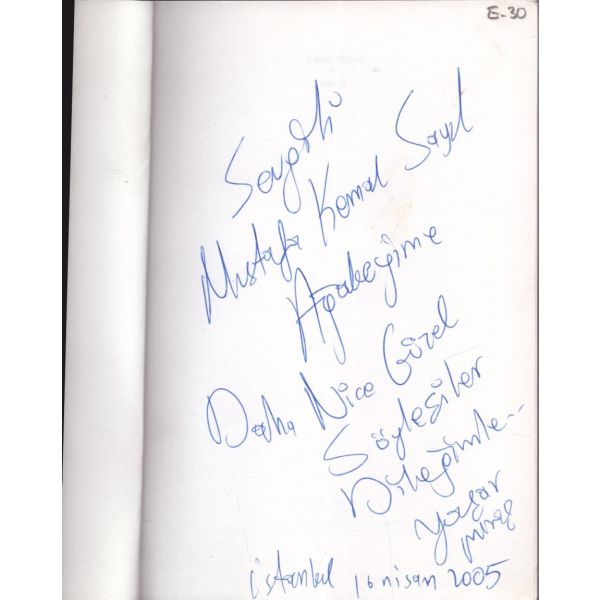 E-30
Sevgili
Mustafa Kemal Sayıl
Ağabeyime
Daha Nice Güzel
Söyleşiler
Dileğimle...
Yaşar
Miraç
İstanbul 16 nisan 2005